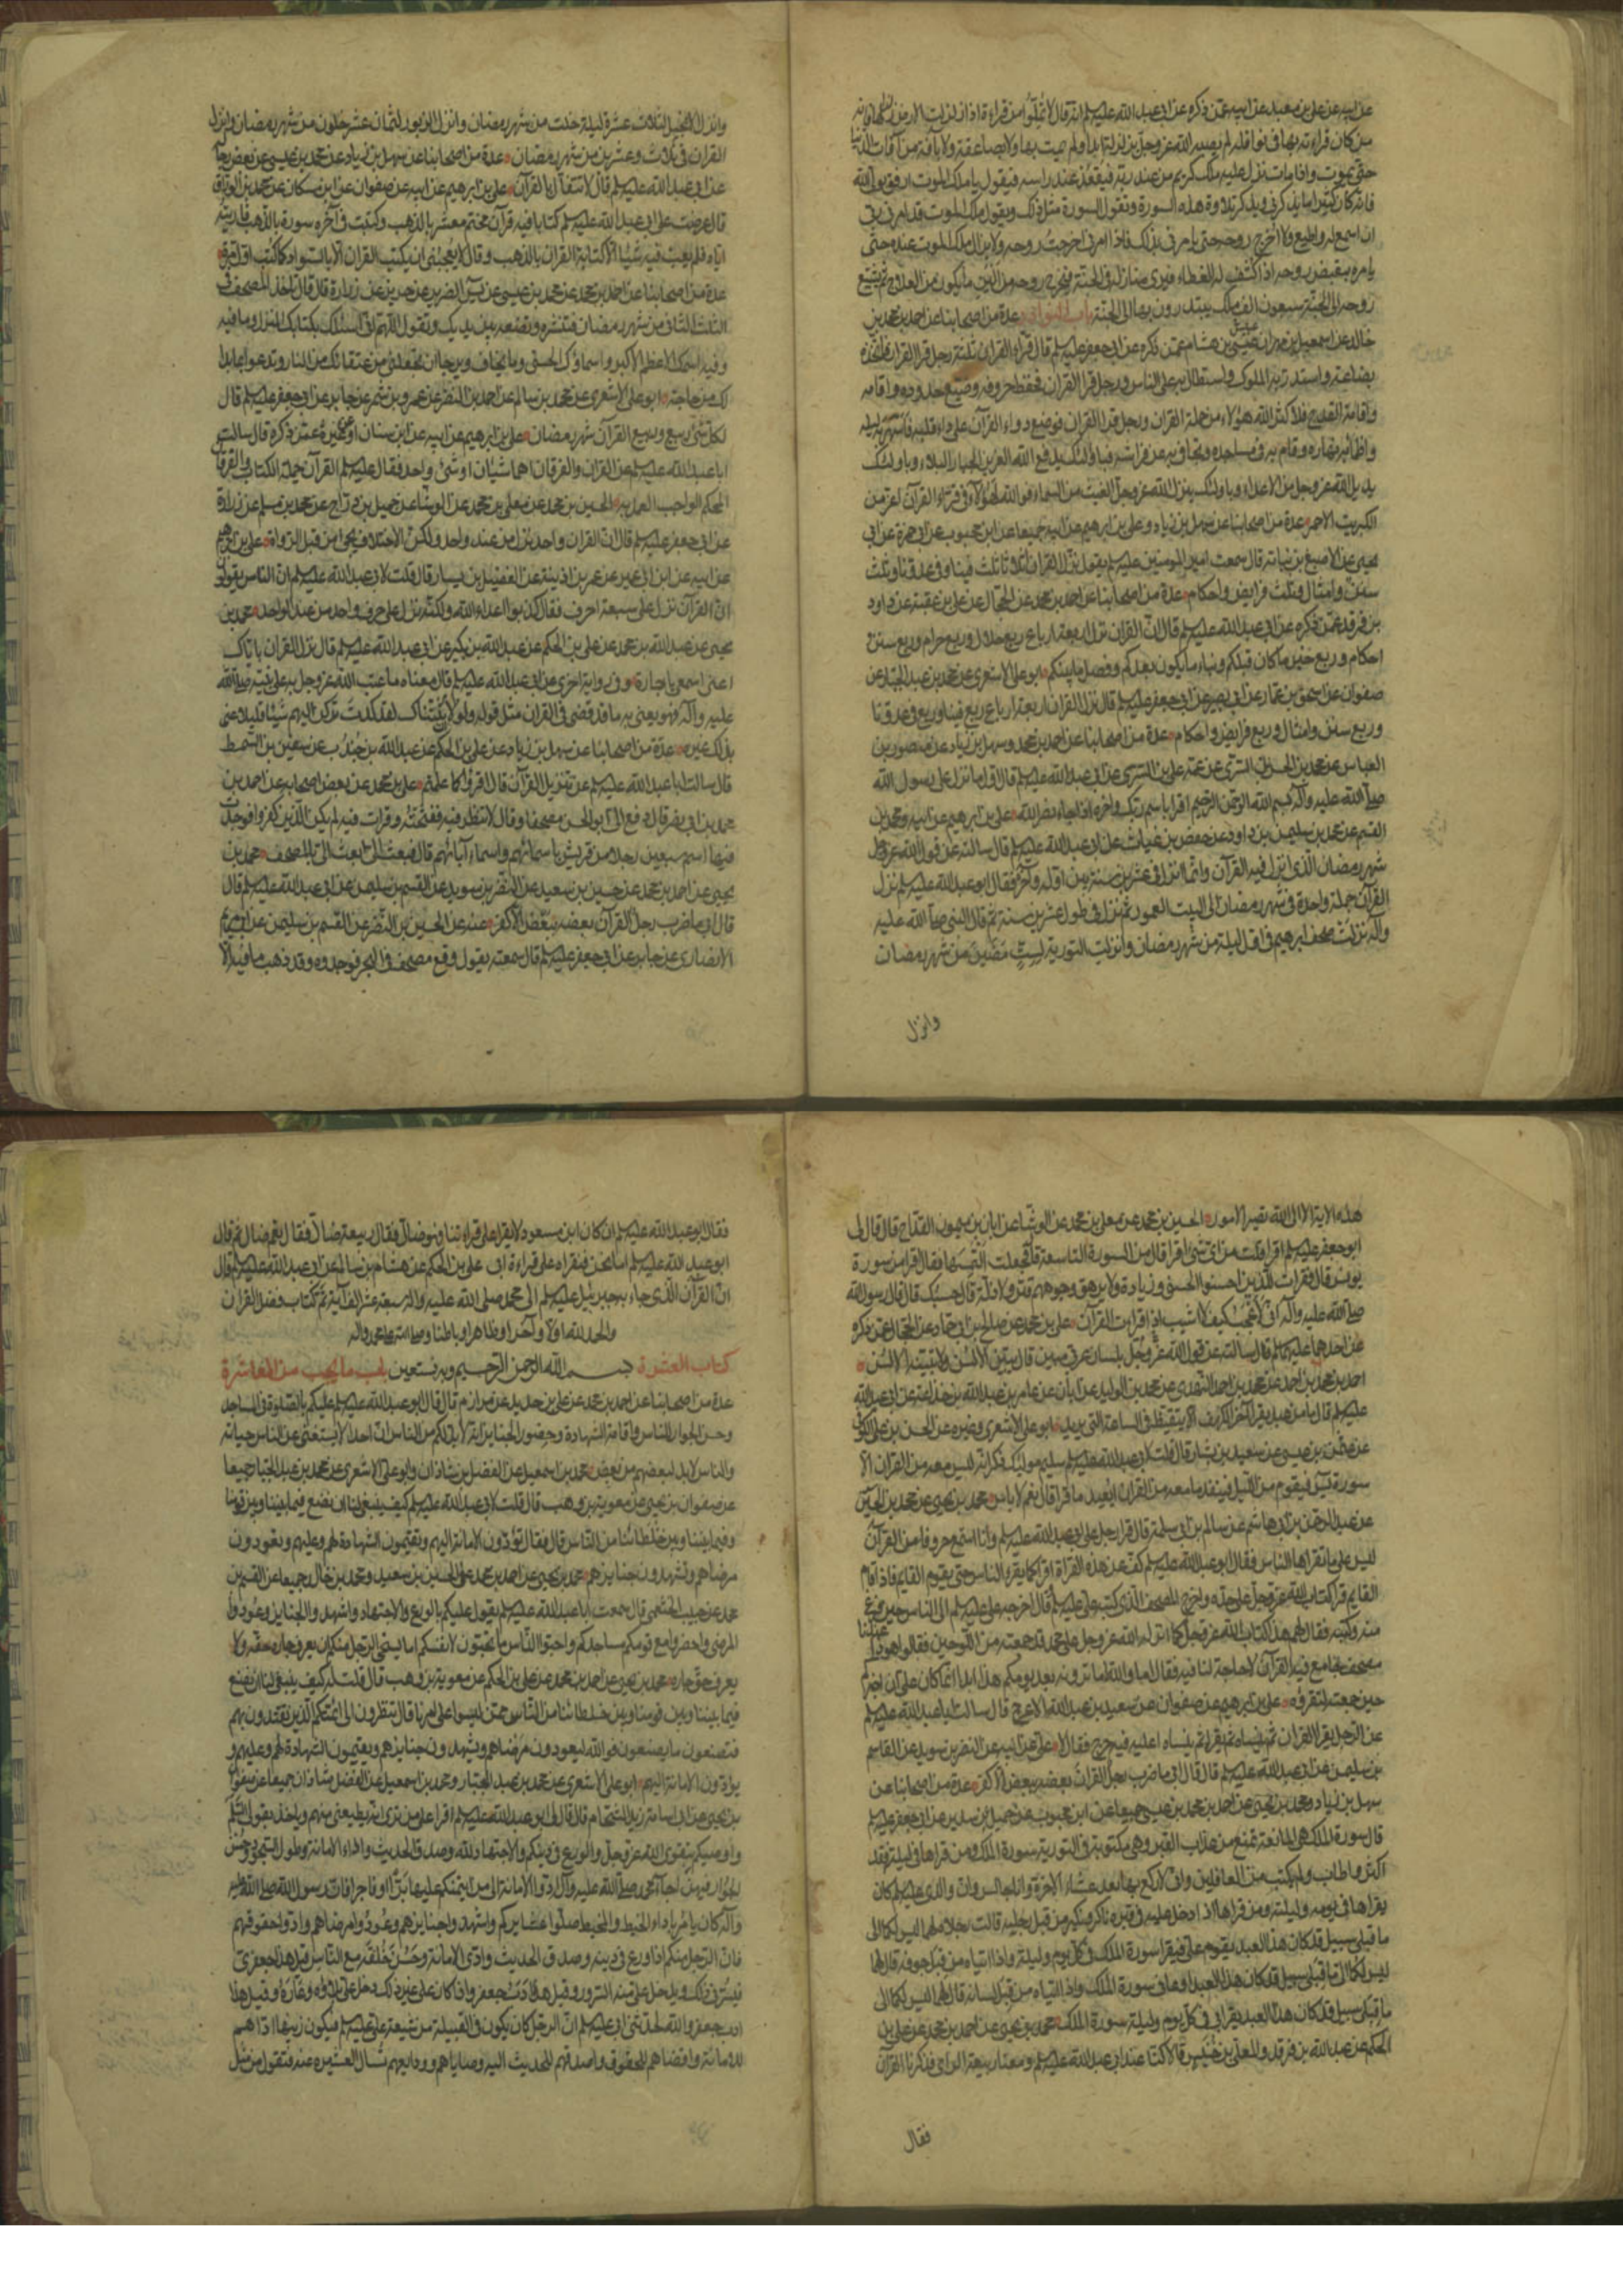 عن ابيه عن علي بن معبد عن ابيه عمن ذكره عن ابي عبد الله عليه السلم انه قال لا تملوا من قراءة اذا زلزلت الارض زلزالها فانه
من كان قراءته بها في نوافله لم يصبه الله عز وجل بزلزلة ابدا ولم يمت بها ولا بصاعقة ولا بآفة من آفات الدنيا
حتى يموت واذا مات نزل عليه ملك كريم من عند ربه فيقعد عند راسه فيقول يا ملك الموت ارفق بولي الله
فانه كان كثيرا ما يذكرني ويذكر تلاوة هذه السورة وتقول السورة مثل ذلك ويقول ملك الموت قد امرني ربي
ان اسمع له واطيع ولا اخرج روحه حتى يامرني بذلك فاذا امرني اخرجت روحه ولا يزال ملك الموت عنده حتى
يامره بقبض روحه اذا كشف له الغطاء فيرى منازله في الجنة فيخرج روحه من الين ما يكون من العلاج ثم يشيع
روحه الى الجنة سبعون الف ملك يبتدرون بها الى الجنة باب النوادر عدة من اصحابنا عن احمد بن محمد بن
خالد عن اسمعيل بن مهران عن عبيس بن هشام عمن ذكره عن ابي جعفر عليه السلم قال قراء القران ثلثة رجل قرا القران فاتخذه
بضاعة واستدر به الملوك واستطال به على الناس ورجل قرا القران فحفظ حروفه وضيع حدوده واقامه
واقامة القدح فلا كثر الله هؤلاء من حملة القران ورجل قرا القران فوضع دواء القرآن على داء قلبه فاسهر به ليله
واظمأ به نهاره وقام به في مساجده وتجافى به عن فراشه فباولئك يدفع الله العزيز الجبار البلاء وباولئك
يديل الله عز وجل من الاعداء وباولئك ينزل الله عز وجل الغيث من السماء فوالله لهؤلاء في قراء القرآن اعز من
الكبريت الاحمر عدة من اصحابنا عن سهل بن زياد وعلي بن ابرهيم عن ابيه جميعا عن ابن محبوب عن ابي حمزة عن ابي
يحيى عن الاصبغ بن نباته قال سمعت امير المومنين عليه السلم يقول نزل القران اثلاثا ثلث فينا وفي عدونا وثلث
سنن وامثال وثلث فرايض واحكام عدة من اصحابنا عن احمد بن محمد عن الحجال عن علي بن عقبة عن داود
بن فرقد عمن ذكره عن ابي عبد الله عليه السلم قال ان القران نزل اربعة ارباع ربع حلال وربع حرام وربع سنن
احكام وربع خبر ما كان قبلكم ونباء ما يكون بعدكم وفصل ما بينكم ابو علي الاشعري عن محمد بن عبد الجبار عن
صفوان عن اسحق بن عمار عن ابي بصير عن ابي جعفر عليه السلم قال نزل القران اربعة ارباع ربع فينا وربع في عدونا
وربع سنن وامثال وربع فرايض واحكام عدة من اصحابنا عن احمد بن محمد وسهل بن زياد عن منصور بن
العباس عن محمد بن الحسن السري عن عمه علي بن السري عن ابي عبد الله عليه السلم قال اول ما نزل على رسول الله
صلى الله عليه وآله بسم الله الرحمن الرحيم اقرا باسم ربك واخره اذا جاء نصر الله علي بن ابرهيم عن ابيه ومحمد بن
القسم عن محمد بن سليمن بن داود عن حفص بن غياث عن ابي عبد الله عليه السلم قال سالته عن قول الله عز وجل
شهر رمضان الذي انزل فيه القرآن وانما انزل في عشرين سنة بين اوله وآخره فقال ابو عبد الله عليه السلم نزل
القرآن جملة واحدة في شهر رمضان الى البيت المعمور ثم نزل في طول عشرين سنة ثم قال النبي صلى الله عليه
وآله نزلت صحف ابرهيم في اول ليلة من شهر رمضان وانزلت التورية لست مضين من شهر رمضان
وانزل
وانزل الانجيل لثلاث عشرة ليلة خلت من شهر رمضان وانزل الزبور لثمان عشر خلون من شهر رمضان وانزل
القران في ثلاث وعشرين من شهر رمضان عدة من اصحابنا عن سهل بن زياد عن محمد بن عيسى عن بعض رجاله
عن ابي عبد الله عليه السلم قال لا تتفأل بالقرآن علي بن ابرهيم عن ابيه عن صفوان عن ابن مسكان عن محمد بن الوراق
قال عرضت على ابي عبد الله عليه السلم كتابا فيه قرآن مختم معشر بالذهب وكتبت في آخره سورة بالذهب فاريته
اياه فلم يعب فيه شيئا الا كتابة القران بالذهب وقال لا يعجبني ان يكتب القران الا بالسواد كما كتب اول مرة
عدة من اصحابنا عن احمد بن محمد عن محمد بن عيسى عن يس الضرير عن حريز عن زرارة قال قال تاخذ المصحف في
الثلث الثاني من شهر رمضان فتنشره وتضعه بين يديك وتقول اللهم اني اسئلك بكتابك المنزل وما فيه
وفيه اسمك الاعظم الاكبر واسماؤك الحسنى وما يخاف ويرجا ان تجعلني من عتقائك من النار وتدعوا بما بدا
لك من حاجة ابو علي الاشعري عن محمد بن سالم عن احمد بن النضر عن عمرو بن شمر عن جابر عن ابي جعفر عليه السلم قال
لكل شئ ربيع وربيع القرآن شهر رمضان علي بن ابرهيم عن ابيه عن ابن سنان او عن غيره عمن ذكره قال سالت
ابا عبد الله عليه السلم عن القران والفرقان اهما شيئان او شئ واحد فقال عليه السلم القرآن جملة الكتاب والفرقان
المحكم الواجب العمل به الحسين بن محمد عن معلى بن محمد عن الوشا عن جميل بن دراج عن محمد بن مسلم عن زرارة
عن ابي جعفر عليه السلم قال ان القران واحد نزل من عند واحد ولكن الاختلاف يجئ من قبل الرواة علي بن ابرهيم
عن ابيه عن ابن ابي عمير عن عمر بن اذينة عن الفضيل بن يسار قال قلت لابي عبد الله عليه السلم ان الناس يقولون
ان القرآن نزل على سبعة احرف فقال كذبوا اعداء الله ولكنه نزل على حرف واحد من عند الواحد محمد بن
يحيى عن عبد الله بن محمد عن علي بن الحكم عن عبد الله بن بكير عن ابي عبد الله عليه السلم قال نزل القران باياك
اعني اسمعي يا جارة وفي رواية اخرى عن ابي عبد الله عليه السلم قال معناه ما عتب الله عز وجل به على نبيه صلى الله
عليه وآله فهو يعني به ما قد قضى في القران مثل قوله ولولا ان ثبتناك لقد كدت تركن اليهم شيئا قليلا عنى
بذلك غيره عدة من اصحابنا عن سهل بن زياد عن علي بن الحكم عن عبد الله بن جندب عن سفين بن السمط
قال سالت ابا عبد الله عليه السلم عن تنزيل القرآن قال اقرؤا كما علمتم علي بن محمد عن بعض اصحابه عن احمد بن
محمد بن ابي نصر قال دفع الي ابو الحسن مصحفا وقال لا تنظر فيه ففتحته وقرات فيه لم يكن الذين كفروا فوجدت
فيها اسم سبعين رجلا من قريش باسمائهم واسماء آبائهم قال فبعث الي ابعث الي بالمصحف محمد بن
يحيى عن احمد بن محمد عن حسين بن سعيد عن النضر بن سويد عن القسم بن سليمن عن ابي عبد الله عليه السلم قال
قال ابي ما ضرب رجل القرآن بعضه ببعض الا كفر عنه عن الحسين بن النضر عن القسم بن سليمن عن ابي مريم
الانصاري عن جابر عن ابي جعفر عليه السلم قال سمعته يقول وقع مصحف في البحر فوجدوه وقد ذهب ما فيه الا
هذه الاية الا الى الله تصير الامور الحسين بن محمد عن معلى بن محمد عن الوشا عن ابان بن ميمون القداح قال قال لي
ابو جعفر عليه السلم اقرا قلت من اي شئ اقرا قال من السورة التاسعة قال فجعلت التمسها فقال اقرا من سورة
يونس قال فقرات للذين احسنوا الحسنى وزيادة ولا يرهق وجوههم قتر ولا ذلة قال حسبك قال قال رسول الله
صلى الله عليه وآله اني لاعجب كيف لا اشيب اذا قرات القرآن علي بن محمد عن صالح بن ابي حماد عن الحجال عمن ذكره
عن احدهما عليهما السلم قال سالته عن قول الله عز وجل بلسان عربي مبين قال يبين الالسن ولا تبينه الالسن
احمد بن محمد بن احمد عن محمد بن احمد النهدي عن محمد بن الوليد عن ابان عن عامر بن عبد الله بن جذاعة عن ابي عبد الله
عليه السلم قال ما من عبد يقرا آخر الكهف الا تيقظ في الساعة التي يريد ابو علي الاشعري وغيره عن الحسن بن علي الكوفي
عن عثمن بن عيسى عن سعيد بن يسار قال قلت لابي عبد الله عليه السلم سليم مولاك ذكر انه ليس معه من القران الا
سورة يس فيقوم من الليل فينفد ما معه من القرآن ايعيد ما قرا قال نعم لا باس محمد بن يحيى عن محمد بن الحسين
عن عبد الرحمن بن ابي هاشم عن سالم بن ابي سلمة قال قرا رجل على ابي عبد الله عليه السلم وانا استمع حروفا من القرآن
ليس على ما تقراها الناس فقال ابو عبد الله عليه السلم كف عن هذه القراة اقرا كما يقرء الناس حتى يقوم القايم فاذا قام
القايم قرا كتاب الله عز وجل على حده واخرج المصحف الذي كتبه علي عليه السلم وقال اخرجه علي عليه السلم الى الناس حين فرغ
منه وكتبه فقال لهم هذا كتاب الله عز وجل كما انزله الله عز وجل على محمد قد جمعته من اللوحين فقالوا هوذا عندنا
مصحف جامع فيه القرآن لا حاجة لنا فيه فقال اما والله ما ترونه بعد يومكم هذا ابدا انما كان علي ان اخبركم
حين جمعته لتقرؤه علي بن ابرهيم عن صفوان عن سعيد بن عبد الله الاعرج قال سالت ابا عبد الله عليه السلم
عن الرجل يقرا القران ثم ينساه ثم يقرا ثم ينساه اعليه فيه حرج فقال لا علي عن ابيه عن النضر بن سويد عن القاسم
بن سليمن عن ابي عبد الله عليه السلم قال قال ابي ما ضرب رجل القرآن بعضه ببعض الا كفر عدة من اصحابنا عن
سهل بن زياد ومحمد بن يحيى عن احمد بن محمد بن عيسى جميعا عن ابن محبوب عن جميل بن سدير عن ابي جعفر عليه السلم
قال سورة الملك هي المانعة تمنع من عذاب القبر وهي مكتوبة في التورية سورة الملك ومن قراها في ليلته فقد
اكثر واطاب ولم يكتب من الغافلين واني لاركع بها بعد عشاء الاخرة وانا جالس وان والدي عليه السلم كان
يقراها في يومه وليلته ومن قراها اذا دخل عليه في قبره ناكر ونكير من قبل رجليه قالت رجلاه لهما ليس لكما الى
ما قبلي سبيل قد كان هذا العبد يقوم علي فيقرا سورة الملك في كل يوم وليلة واذا اتياه من قبل جوفه قال لهما
ليس لكما الى ما قبلي سبيل قد كان هذا العبد اوعاني سورة الملك واذا اتياه من قبل لسانه قال لهما ليس لكما الى
ما قبلي سبيل قد كان هذا العبد يقرا بي في كل يوم وليلة سورة الملك محمد بن يحيى عن احمد بن محمد عن علي بن
الحكم عن عبد الله بن فرقد والمعلى بن خنيس قالا كنا عند ابي عبد الله عليه السلم ومعنا ربيعة الراي فذكرنا القرآن
فقال
فقال ابو عبد الله عليه السلم ان كان ابن مسعود لا يقرا على قراءتنا فهو ضال فقال ربيعة ضال فقال نعم ضال ثم قال
ابو عبد الله عليه السلم اما نحن فنقراه على قراءة ابي علي بن الحكم عن هشام بن سالم عن ابي عبد الله عليه السلم قال
ان القرآن الذي جاء به جبريل عليه السلم الى محمد صلى الله عليه واله سبعة عشر الف آية تم كتاب فضل القران
والحمد لله اولا وآخرا وظاهرا وباطنا وصلى الله على محمد واله
كتاب العشرة بسم الله الرحمن الرحيم وبه نستعين باب ما يجب من المعاشرة
عدة من اصحابنا عن احمد بن محمد عن علي بن حديد عن مرازم قال قال ابو عبد الله عليه السلم عليكم بالصلوة في المساجد
وحسن الجوار للناس واقامة الشهادة وحضور الجنايز انه لا بد لكم من الناس ان احدا لا يستغني عن الناس حياته
والناس لا بد لبعضهم من بعض محمد بن اسمعيل عن الفضل بن شاذان وابو علي الاشعري عن محمد بن عبد الجبار جميعا
عن صفوان بن يحيى عن معوية بن وهب قال قلت لابي عبد الله عليه السلم كيف ينبغي لنا ان نصنع فيما بيننا وبين قومنا
وفيما بيننا وبين خلطائنا من الناس قال فقال تؤدون الامانة اليهم وتقيمون الشهادة لهم وعليهم وتعودون
مرضاهم وتشهدون جنايزهم محمد بن يحيى عن احمد بن محمد عن الحسين بن سعيد ومحمد بن خالد جميعا عن القسم بن
محمد عن حبيب الخثعمي قال سمعت ابا عبد الله عليه السلم يقول عليكم بالورع والاجتهاد واشهدوا الجنايز وعودوا
المرضى واحضروا مع قومكم مساجدكم واحبوا للناس ما تحبون لانفسكم اما يستحي الرجل منكم ان يعرف جاره حقه ولا
يعرف حق جاره محمد بن يحيى عن احمد بن محمد عن علي بن الحكم عن معوية بن وهب قال قلت له كيف ينبغي لنا ان نصنع
فيما بيننا وبين قومنا وبين خلطائنا من الناس ممن ليسوا على امرنا قال تنظرون الى ائمتكم الذين تقتدون بهم
فتصنعون ما يصنعون فوالله ليعودون مرضاهم ويشهدون جنايزهم ويقيمون الشهادة لهم وعليهم و
يؤدون الامانة اليهم ابو علي الاشعري عن محمد بن عبد الجبار ومحمد بن اسمعيل عن الفضل بن شاذان جميعا عن صفوان
بن يحيى عن ابي اسامة زيد الشحام قال قال لي ابو عبد الله عليه السلم اقرا على من ترى انه يطيعني منهم وياخذ بقولي السلم
واوصيكم بتقوى الله عز وجل والورع في دينكم والاجتهاد لله وصدق الحديث واداء الامانة وطول السجود وحسن
الجوار فبهذا جاء محمد صلى الله عليه وآله ادوا الامانة الى من ايتمنكم عليها برا او فاجرا فان رسول الله صلى الله عليه
وآله كان يامر باداء الخيط والمخيط صلوا عشايركم واشهدوا جنايزهم وعودوا مرضاهم وادوا حقوقهم
فان الرجل منكم اذا ورع في دينه وصدق الحديث وادى الامانة وحسن خلقه مع الناس قيل هذا جعفري
فيسرني ذلك ويدخل علي منه السرور وقيل هذا ادب جعفر واذا كان على غير ذلك دخل علي بلاؤه وعاره وقيل هذا
ادب جعفر والله لحدثني ابي عليه السلم ان الرجل كان يكون في القبيلة من شيعة علي عليه السلم فيكون زينها اداهم
للامانة واقضاهم للحقوق واصدقهم للحديث اليه وصاياهم وودايعهم تسال العشيرة عنه فتقول من مثل